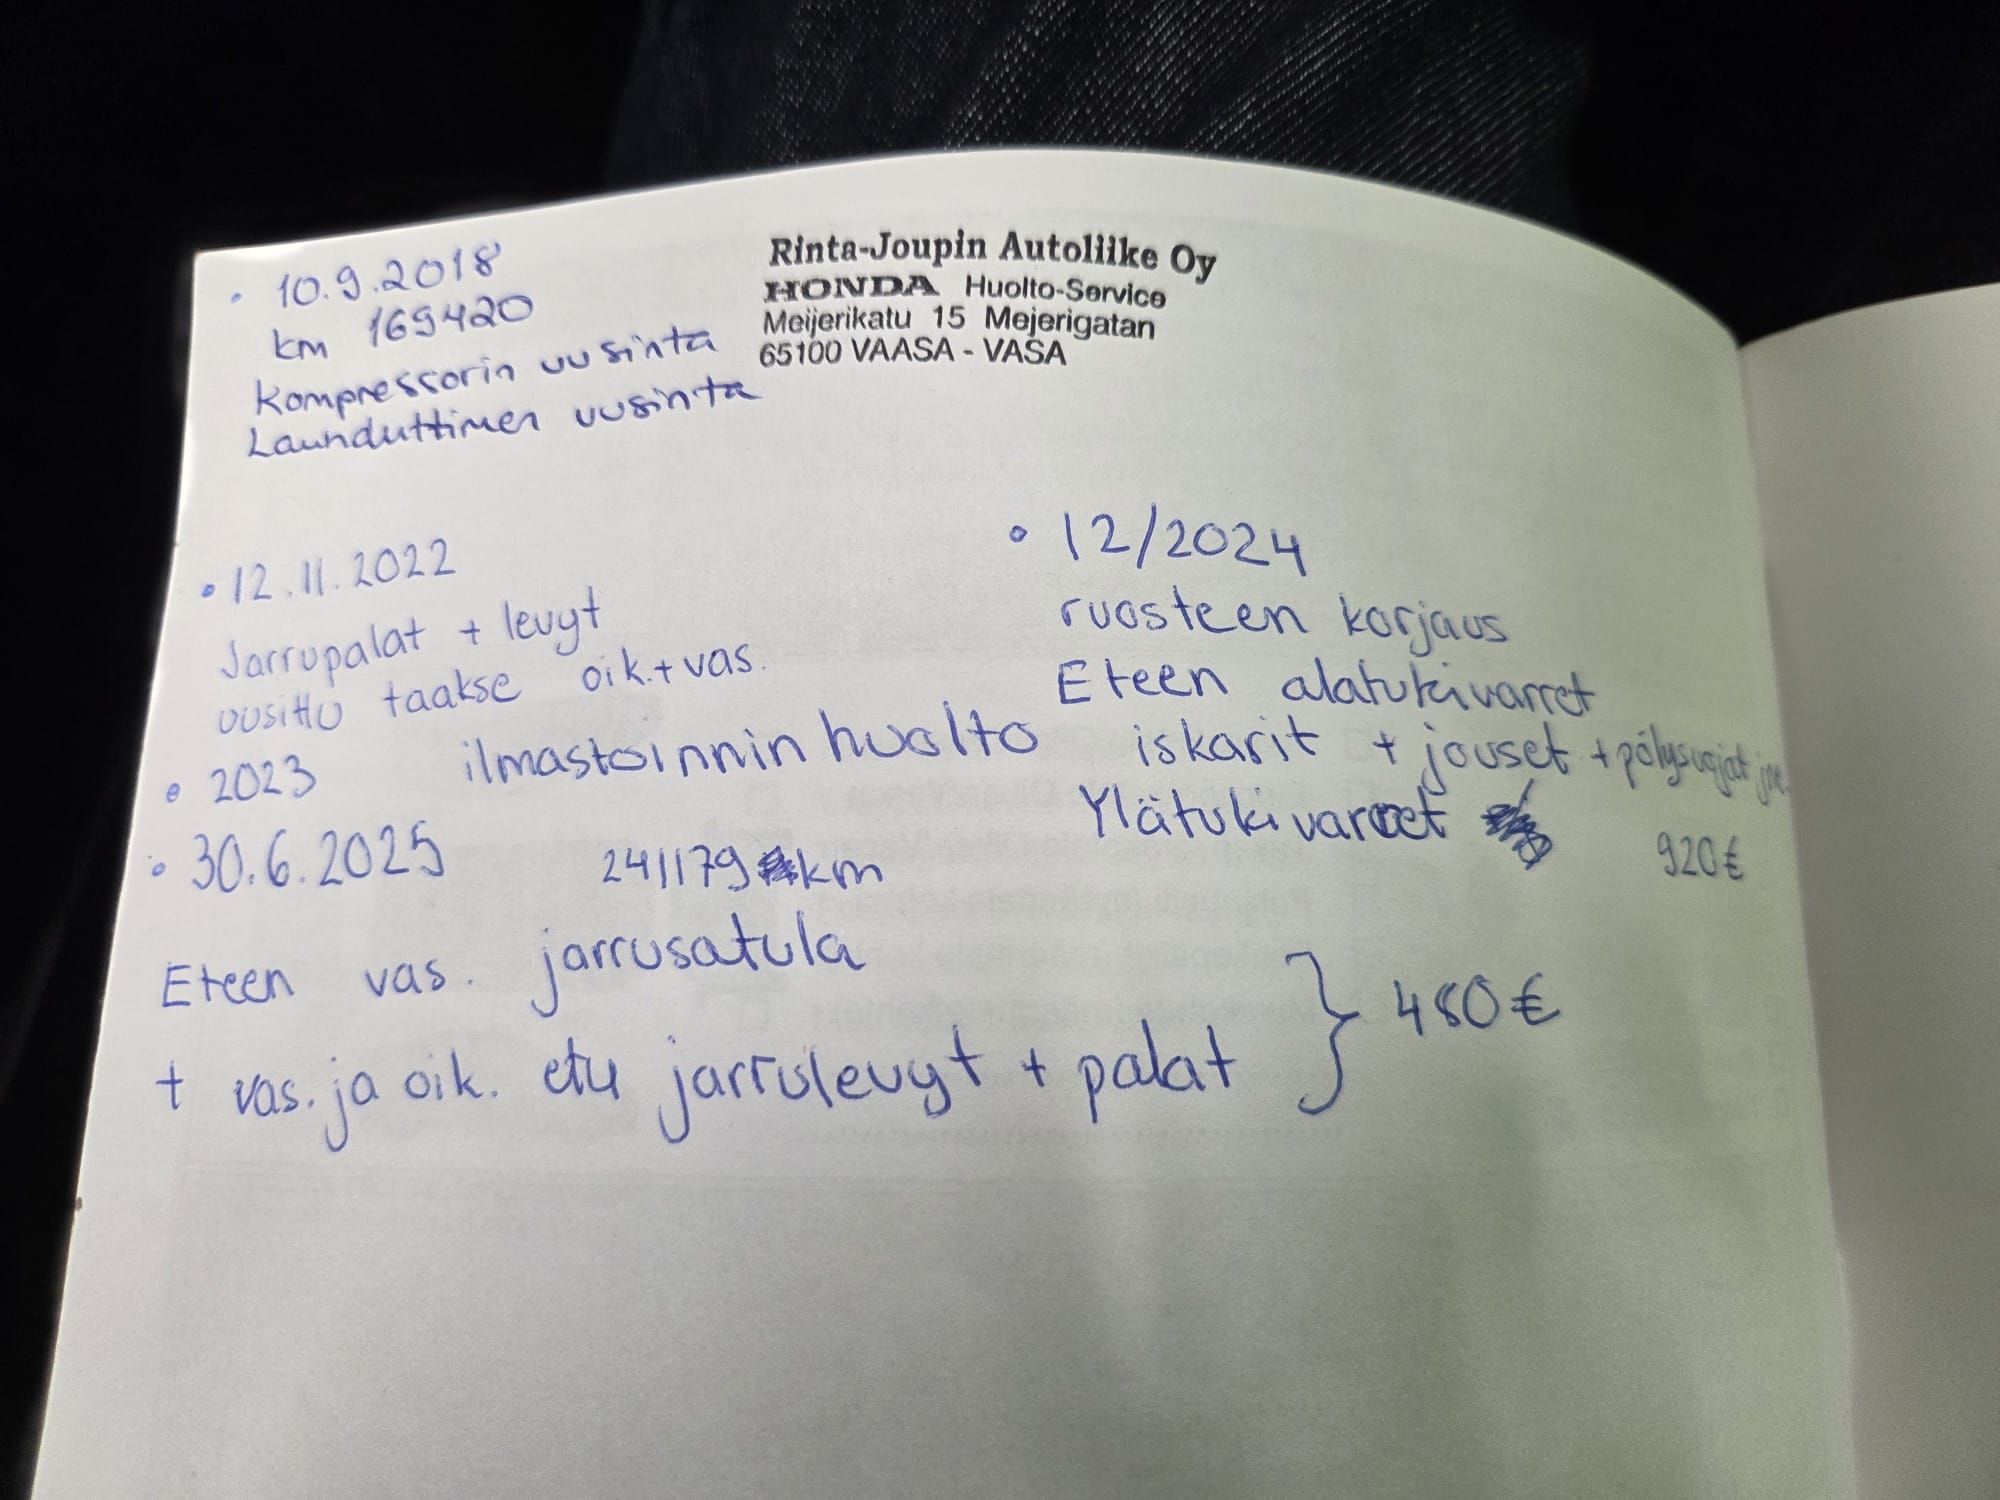 • 10.9.2018
km 169420
Kompressorin uusinta
Launduttimen uusinta
Rinta-Joupin Autoliike Oy
HONDA Huolto-Service
Meijerikatu 15 Mejerigatan
65100 VAASA - VASA
• 12.11.2022
Jarrupalat + levyt
uusittu taakse oik.+vas.
• 2023 ilmastoinnin huolto
• 12/2024
ruosteen korjaus
Eteen alatukivarret
iskarit + jouset + pölysuojat
Ylätukivarret
920€
• 30.6.2025 241179 km
Eteen vas. jarrusatula
+ vas. ja oik. etu jarrulevyt + palat } 480€